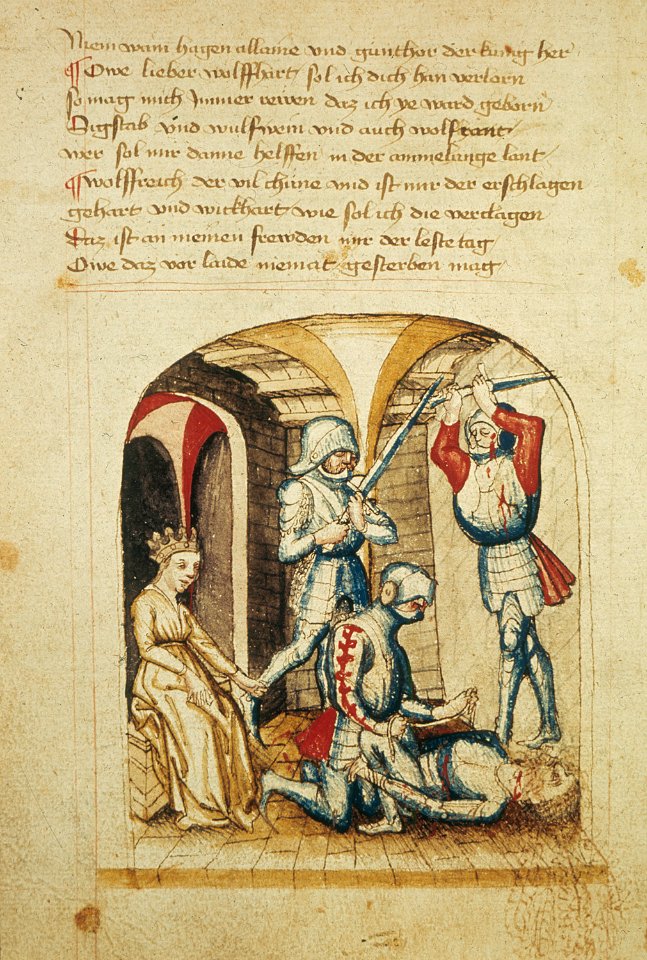 Niem wann hagen allaine vnd gunthor der kunig her
Owe lieber wolffhart sol ich dich han verlorn
so mag mich Immer rewen daz ich ye ward geborn
Sigstab vnd wulfwein vnd auch wolfprant
wer sol mir danne helffen in der ammelunge lant
wolffreich der vil chüne vnd ist mir der erschlagen
gehart vnd wickhart wie sol ich die verclagen
Daz ist an meinen frewden mir der leste tag
Owe daz vor laide niemat gesterben mag